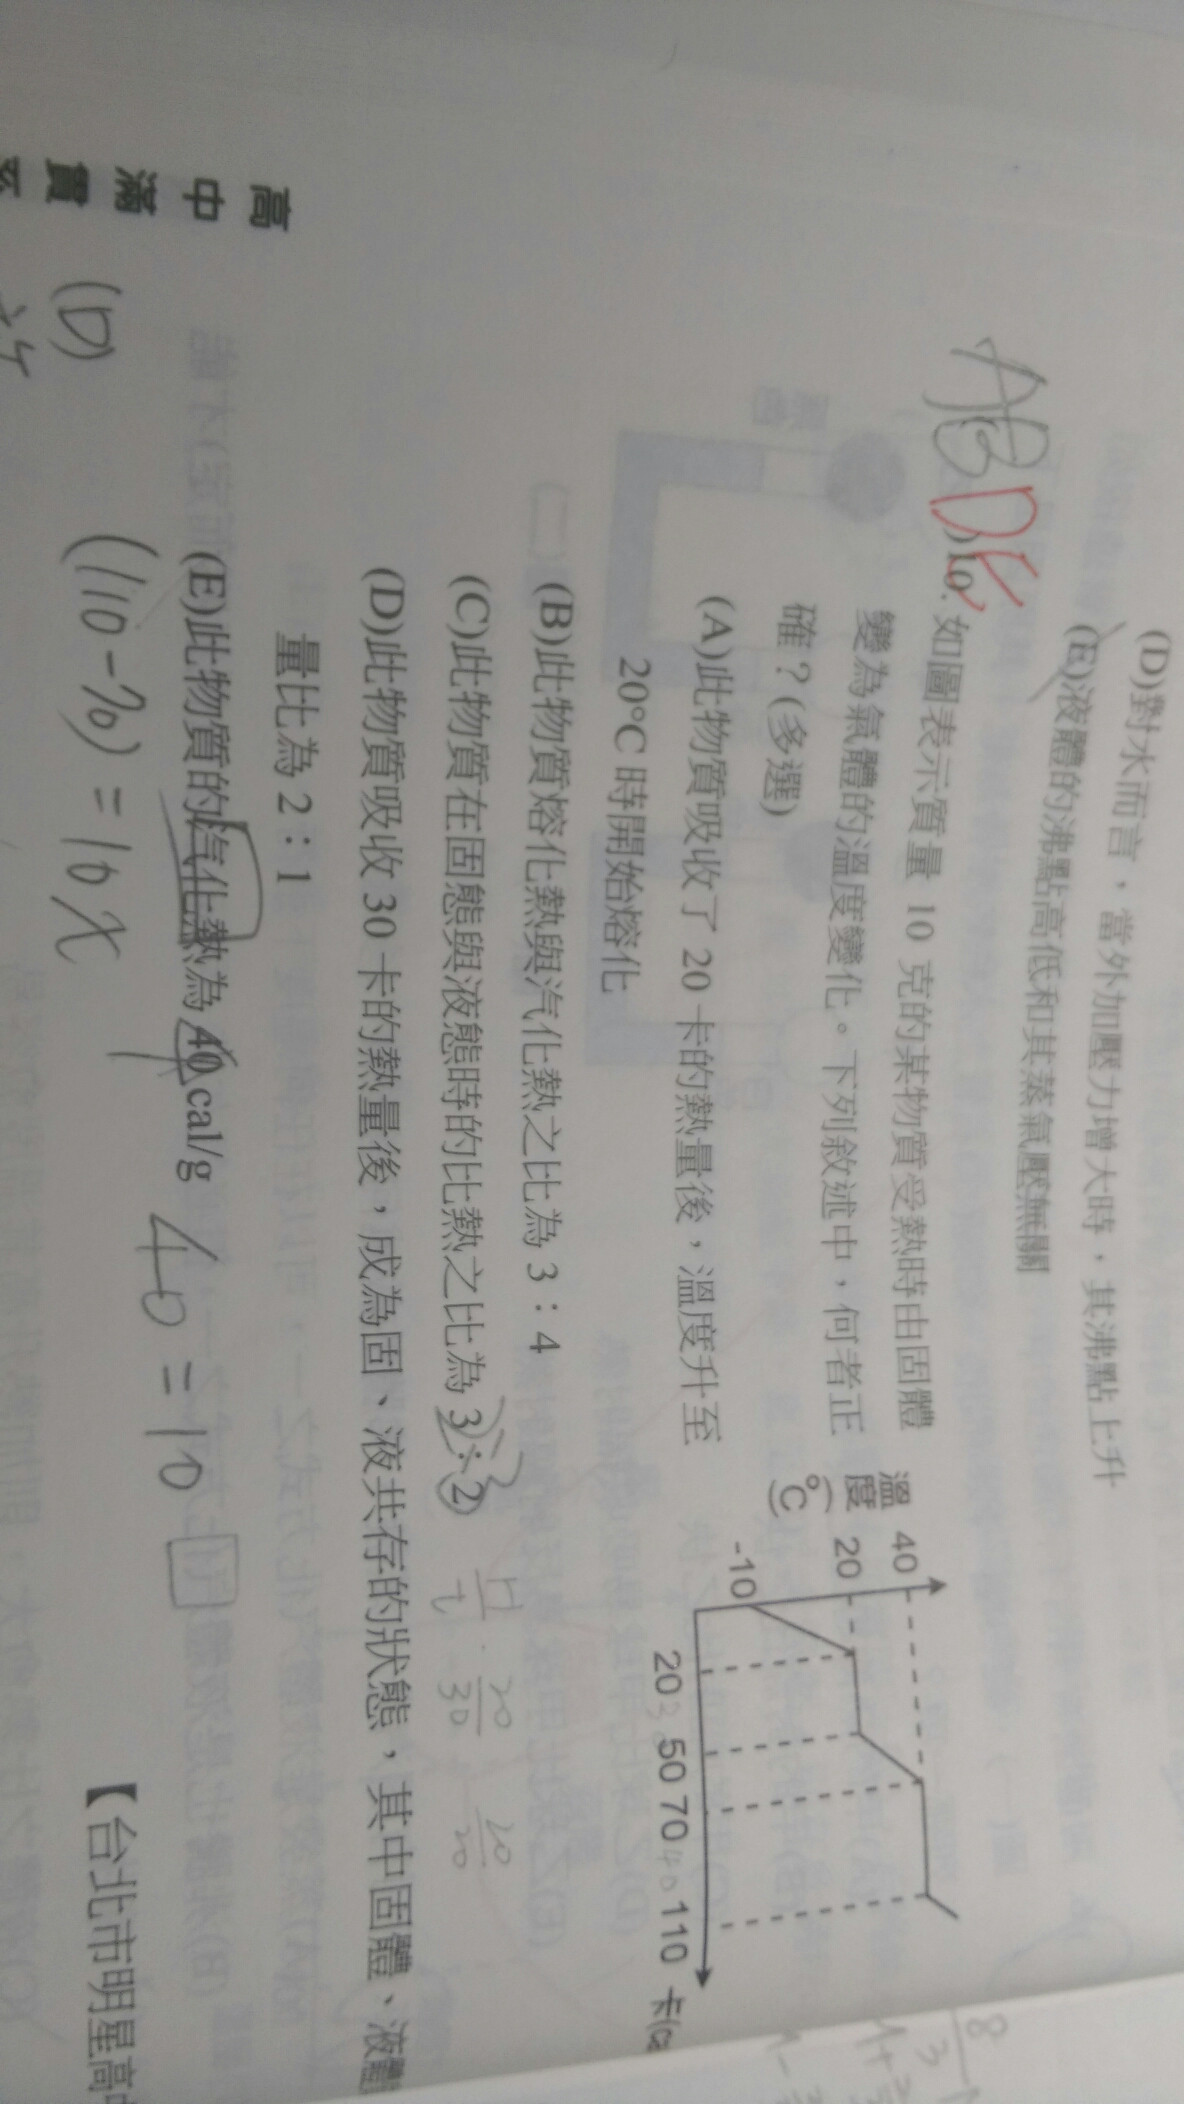 (D)對水而言，當外加壓力增大時，其沸點上升
(E)液體的沸點高低和其蒸氣壓無關
ABDE
)10. 如圖表示質量 10 克的某物質受熱時由固體
變為氣體的溫度變化。下列敘述中，何者正
確？(多選)
(A)此物質吸收了 20 卡的熱量後，溫度升至
20°C 時開始熔化
(B)此物質熔化熱與汽化熱之比為 3：4
(C)此物質在固態與液態時的比熱之比為 3：2
(D)此物質吸收 30 卡的熱量後，成為固、液共存的狀態，其中固體、液體
量比為 2：1
(E)此物質的汽化熱為 40 cal/g
溫度(°C)
40
20
-10
20 50 70 110 卡(ca
20/30 20/20
40
(110-70)=10X
40=10
【台北市明星高中
高中滿貫
(D)